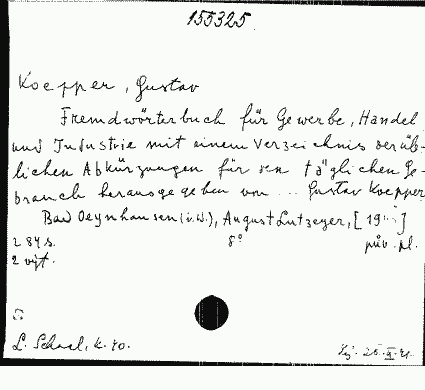 155325
Koepper, Gustav
Fremdwörterbuch für Gewerbe, Handel
und Industrie mit einem Verzeichnis der üb-
lichen Abkürzungen für den täglichen Ge-
brauch herausgegeben von ... Gustav Koepper
Bad Oeynhausen (i.W.), August Lutzeyer, [19..]
284 s. 8° pův. pl.
2 výt.